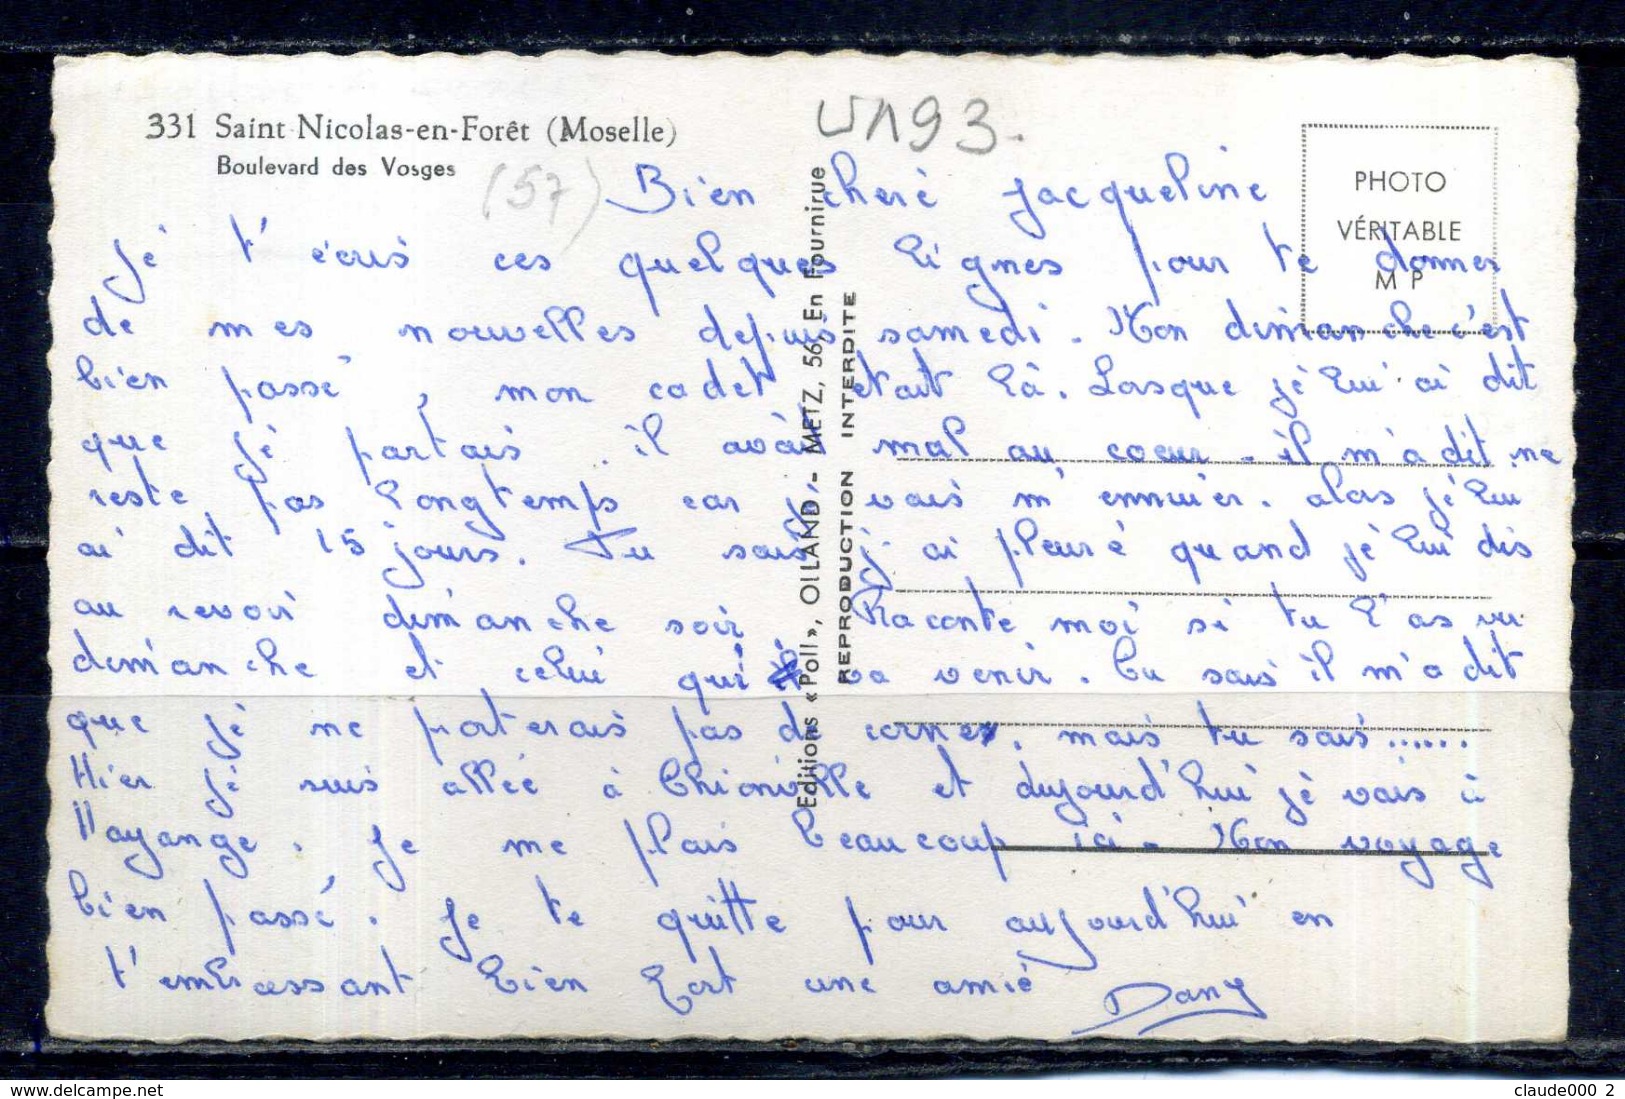 331 Saint-Nicolas-en-Forêt (Moselle)
Boulevard des Vosges
(57)
UN93.
PHOTO
VÉRITABLE
M P
Editions « Poll », OLLAND - METZ, 56, En Fournirue
REPRODUCTION INTERDITE
Bien cheré Jacqueline
Je t'écris ces quelques lignes pour te donner
de mes nouvelles depuis samedi. Mon dimanche c'est
bien passé, mon cadet était là. Lorsque je lui ai dit
que je partais. il avait mal au coeur - il m'a dit ne
reste pas longtemps car je vais m'ennuier. alors je lui
ai dit 15 jours. Tu sais j'ai pleuré quand je lui dis
au revoir dimanche soir. Raconte moi si tu l'as vu
dimanche et celui qui va venir. Tu sais il m'a dit
que je ne porterais pas de corne, mais tu sais......
Hier je suis allée à Thionville et aujourd'hui je vais à
Hayange. Je me plais beaucoup ici - Mon voyage
bien passé. Je te quitte pour aujourd'hui en
t'embrassant bien fort une amie Dany
claude000_2